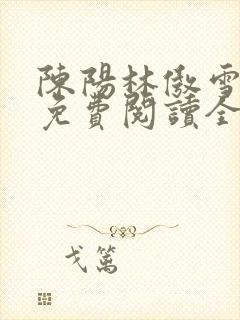 陳陽林傲雪
免費閱讀全
戈篱